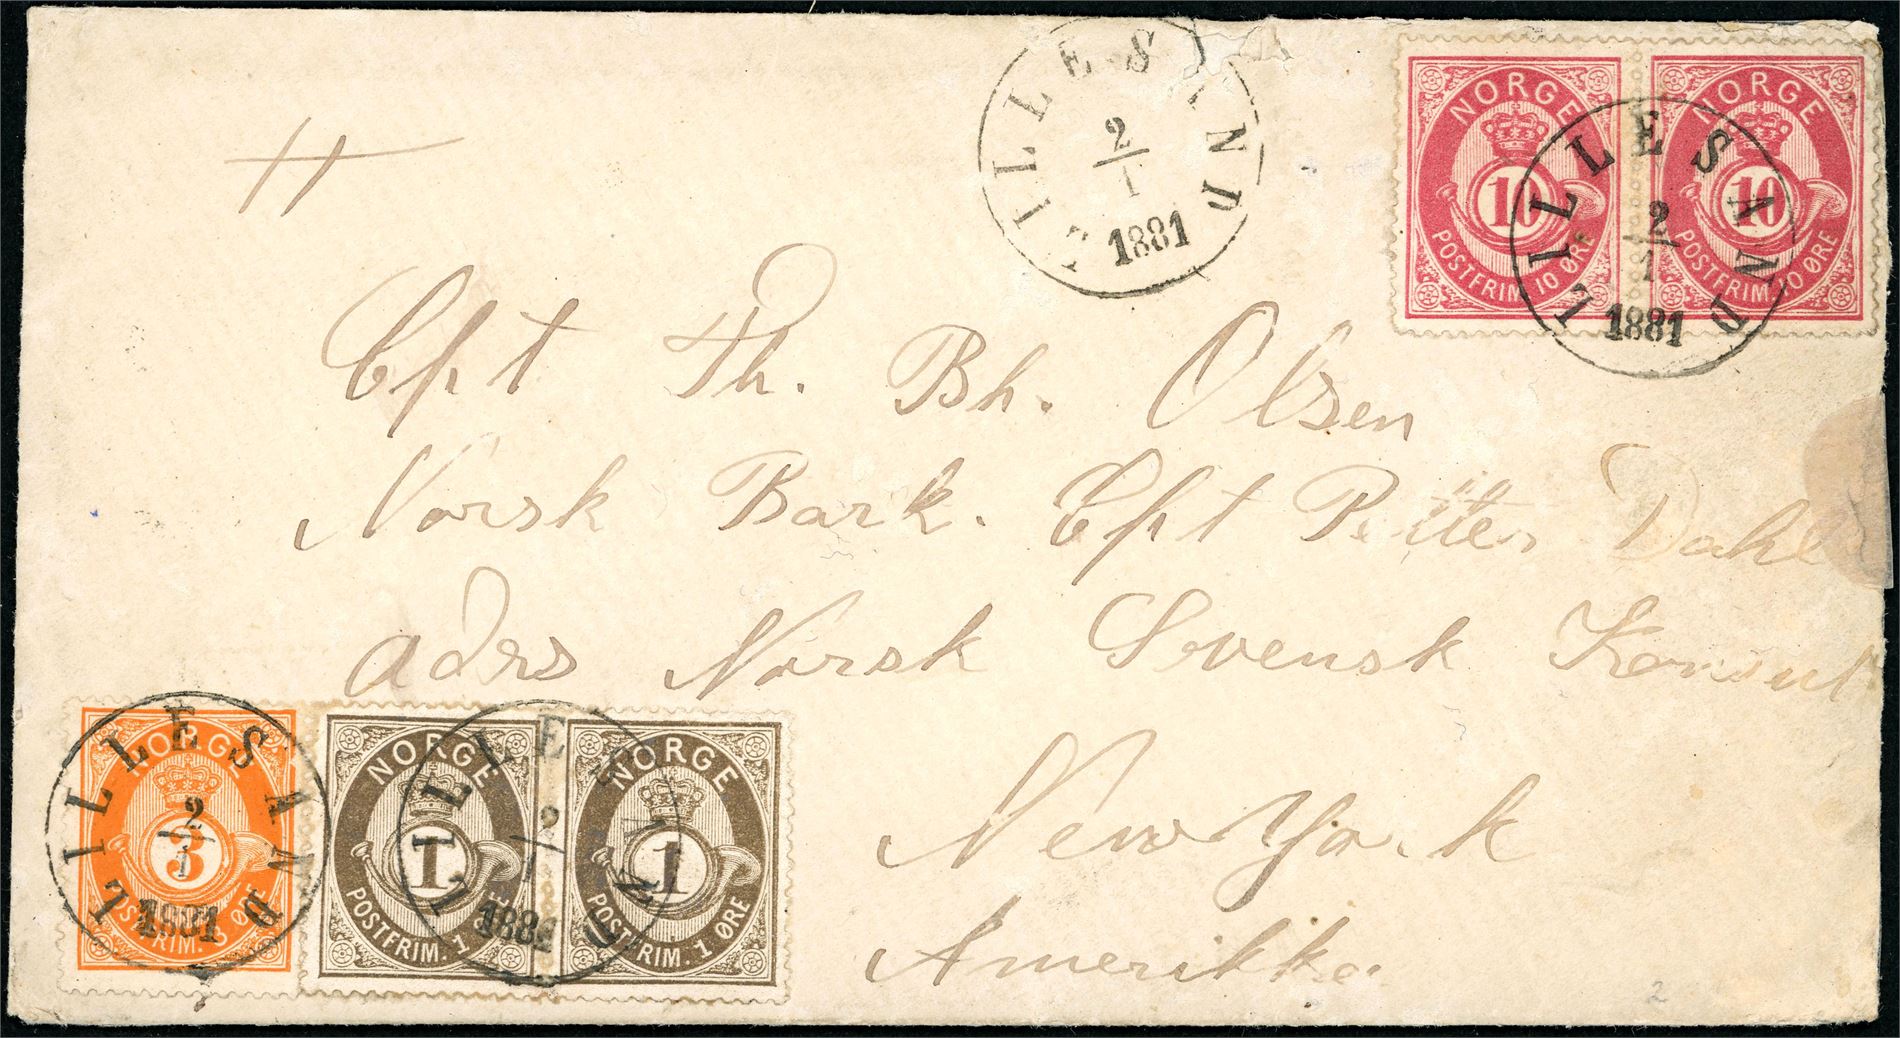 LILLESAND
2/1
1881
NORGE
10
POSTFRIM. 10 ØRE
NORGE
10
POSTFRIM. 10 ØRE
LILLESAND
2/1
1881
Cpt Th. Bh. Olsen
Norsk Bark. Cpt Petter Dahl
adrs Norsk Svensk Konsul
New York
Amerikka
NORGE
3
POSTFRIM. 3 ØRE
LILLESAND
2/1
1881
NORGE
1
POSTFRIM. 1 ØRE
NORGE
1
POSTFRIM. 1 ØRE
LILLESAND
2/1
1881
2